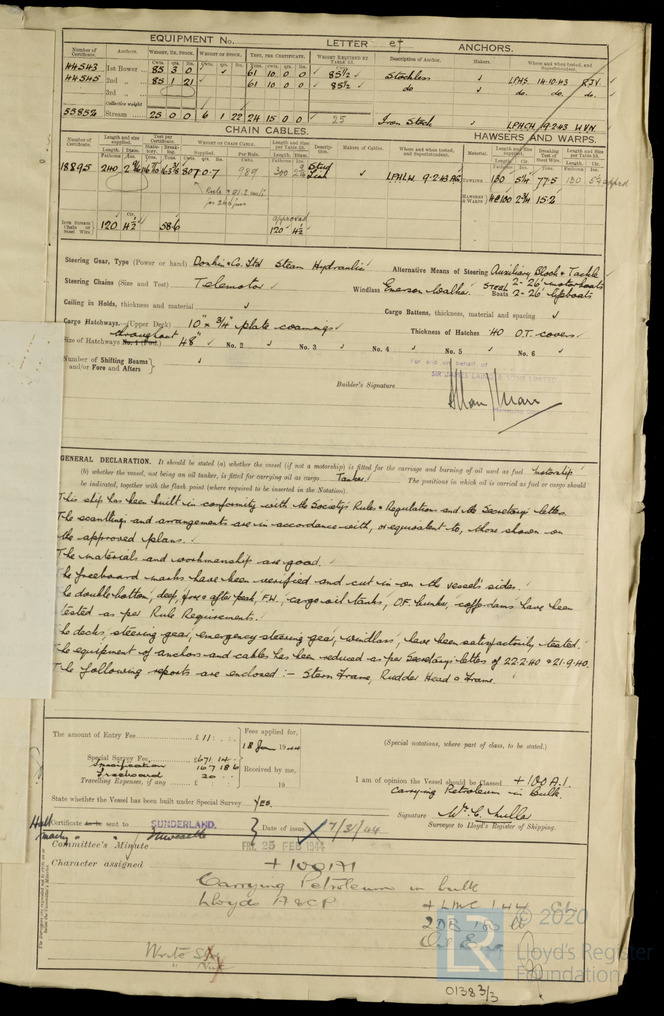 EQUIPMENT No. LETTER ANCHORS.
Number of Certificate. Anchors. WEIGHT, EX. STOCK. WEIGHT OF STOCK. TEST, PER CERTIFICATE. WEIGHT REQUIRED BY TABLE 53. Description of Anchor. Makers. Where and when tested, and Superintendent.
44543 1st Bower 85 3 0 61 10 0 0 85½ Stockless LPHS. 14.10.43 RJV
44545 2nd " 85 1 21 61 10 0 0 85½ do do. do. do.
3rd "
Collective weight
55852 Stream 25 0 0 6 1 22 24 15 0 0 25 Iron Stock LPHCH 19.2.43 HVN
CHAIN CABLES. HAWSERS AND WARPS.
18895 240 807.0.7 989 300 Stud Link LPHLW. 9.2.43
TOWING 130 5¼ 77.5 130
HAWSERS & WARPS 100 2¾ 15.2
approved
Iron Stream Chain or Steel Wire 120 4½ 58.6 120 4½
Steering Gear, Type (Power or hand) Donkin & Co. Ltd Steam Hydraulic Alternative Means of Steering Auxiliary Block & Tackle
Steering Chains (Size and Test) Telemotor Windlass Emerson Walker Steel Boats 2-26' motorboats 2-26' lifeboats
Ceiling in Holds, thickness and material Cargo Battens, thickness, material and spacing
Cargo Hatchways. (Upper Deck) 10" x ¾" plate coamings Thickness of Hatches 40 O.T. covers
throughout
Size of Hatchways No. 1 (Fwd.) 48" No. 2 No. 3 No. 4 No. 5 No. 6
Number of Shifting Beams and/or Fore and Afters
For and on behalf of
SIR JAMES LAING & SONS LIMITED
Builder's Signature
GENERAL DECLARATION. It should be stated (a) whether the vessel (if not a motorship) is fitted for the carriage and burning of oil used as fuel Motorship
(b) whether the vessel, not being an oil tanker, is fitted for carrying oil as cargo Tanker The positions in which oil is carried as fuel or cargo should
be indicated, together with the flash point (where required to be inserted in the Notation).
This ship has been built in conformity with the Society's Rules & Regulations and the Secretary's letters.
The scantlings and arrangements are in accordance with, or equivalent to, those shown on
the approved plans.
The materials and workmanship are good.
The freeboard marks have been verified and cut in on the vessel's sides.
The double bottom, deep, fore & after peak, F.W. cargo oil tanks, O.F. bunker, cofferdams have been
tested as per Rule Requirements.
The decks, steering gear, emergency steering gear, windlass, have been satisfactorily tested.
The equipment of anchors and cables has been reduced as per Secretary's letters of 22.2.40 & 21.9.40.
The following reports are enclosed :- Stern Frame, Rudder Head & Frame.
The amount of Entry Fee £11 Fees applied for,
18 Jan 1944
(Special notations, where part of class, to be stated.)
Special Survey Fee £671 14
Specification 167 18 6 Received by me,
Freeboard 20
Travelling Expenses, if any £ 19
I am of opinion the Vessel should be Classed +100A1.
Carrying Petroleum in Bulk.
State whether the Vessel has been built under Special Survey Yes.
Signature
Surveyor to Lloyd's Register of Shipping.
Hull Certificate to be sent to SUNDERLAND. Date of issue 7/3/44
Machy " " Newcastle
Committee's Minute FRI. 25 FEB 1944
Character assigned +100A1
Carrying Petroleum in bulk
Lloyds A&CP
+LMC 1.44
2DB 150 lb
© 2020
LR
Lloyd's Register
Foundation
0138 3/3